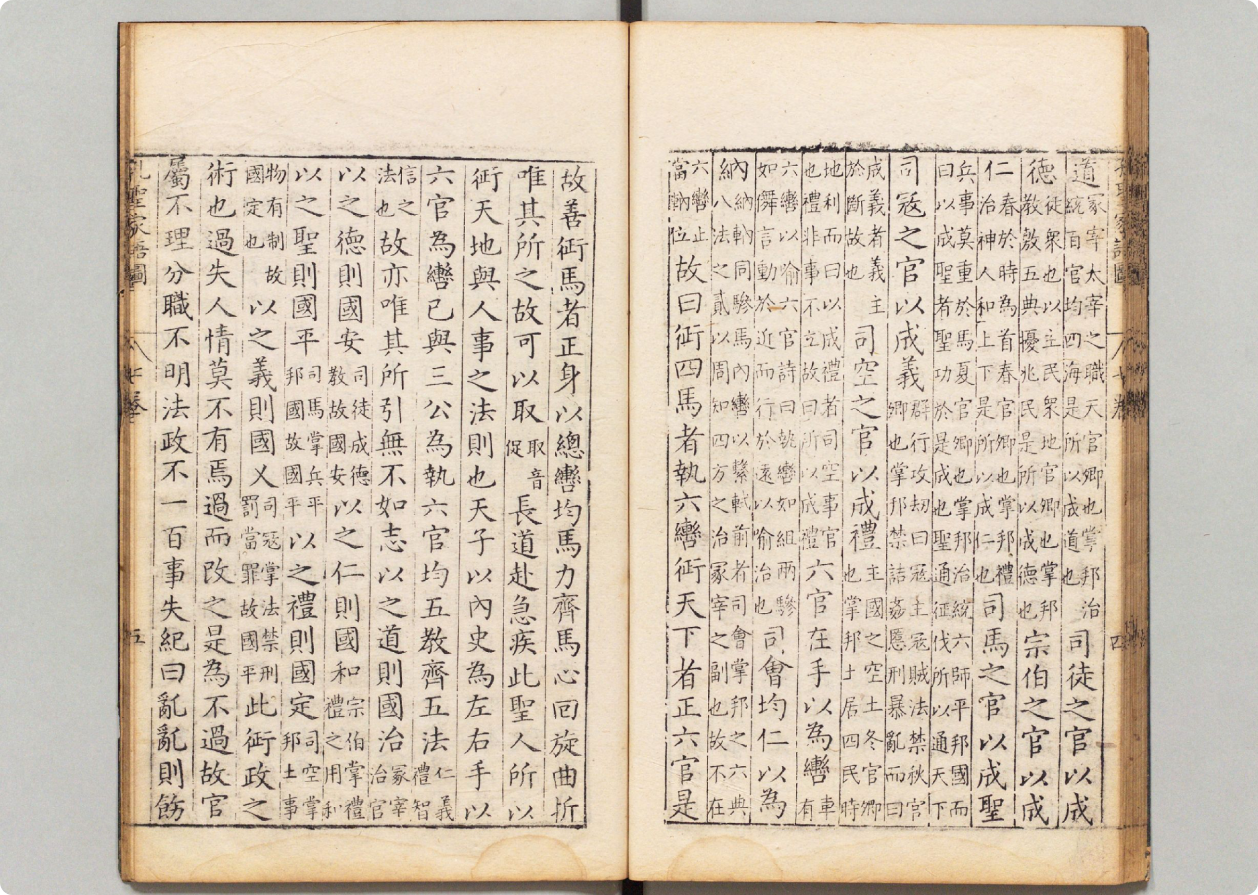 道冢宰太宰之職天官卿也掌邦治統百官均四海是所以成道也司徒之官以成
德徒衆也以主民衆地官卿也掌邦教敷五典擾兆民是所以成德也宗伯之官以成
仁春於時為首春官卿也掌邦禮治神人和上下是所以成仁也司馬之官以成聖
兵事莫重於馬夏官卿也掌邦治統六師平邦國而曰以成聖者聖功於是成也聖通征伐所以通天下
司冦之官以成義群行攻刧曰冦主冦賊法禁秋官卿也掌邦禁詰姦慝刑暴亂而曰
成義者義主於斷故也司空之官以成禮主國之空土冬官卿也掌邦土居四民時
地利而曰以成禮者司空事官也禮非事不立故曰所以成禮六官在手以為轡車有
六轡以喻六官詩曰執轡如組兩驂如儛言動於近而行於遠以喻治也司會均仁以為
納納軜同驂馬內轡以繫軾前者司會掌邦之六典八法之貳以周知四方之治冢宰之副也故不在
六轡止當軜位故曰御四馬者執六轡御天下者正六官是
故善御馬者正身以總轡均馬力齊馬心回旋曲折
唯其所之故可以取取音促長道赴急疾此聖人所以
御天地與人事之法則也天子以內史為左右手以
六官為轡已與三公為執六官均五教齊五法仁義禮智
信之法也故亦唯其所引無不如志以之道則國治冢宰治官
以之德則國安司徒成德教故國安以之仁則國和宗伯掌禮禮之用和
以之聖則國平司馬掌兵平邦國故國平以之禮則國定司空掌邦土事
物有制故國定也以之義則國乂司冦掌法禁刑罰當罪故國平此御政之
術也過失人情莫不有焉過而改之是為不過故官
屬不理分職不明法政不一百事失紀曰亂亂則飭
五
四